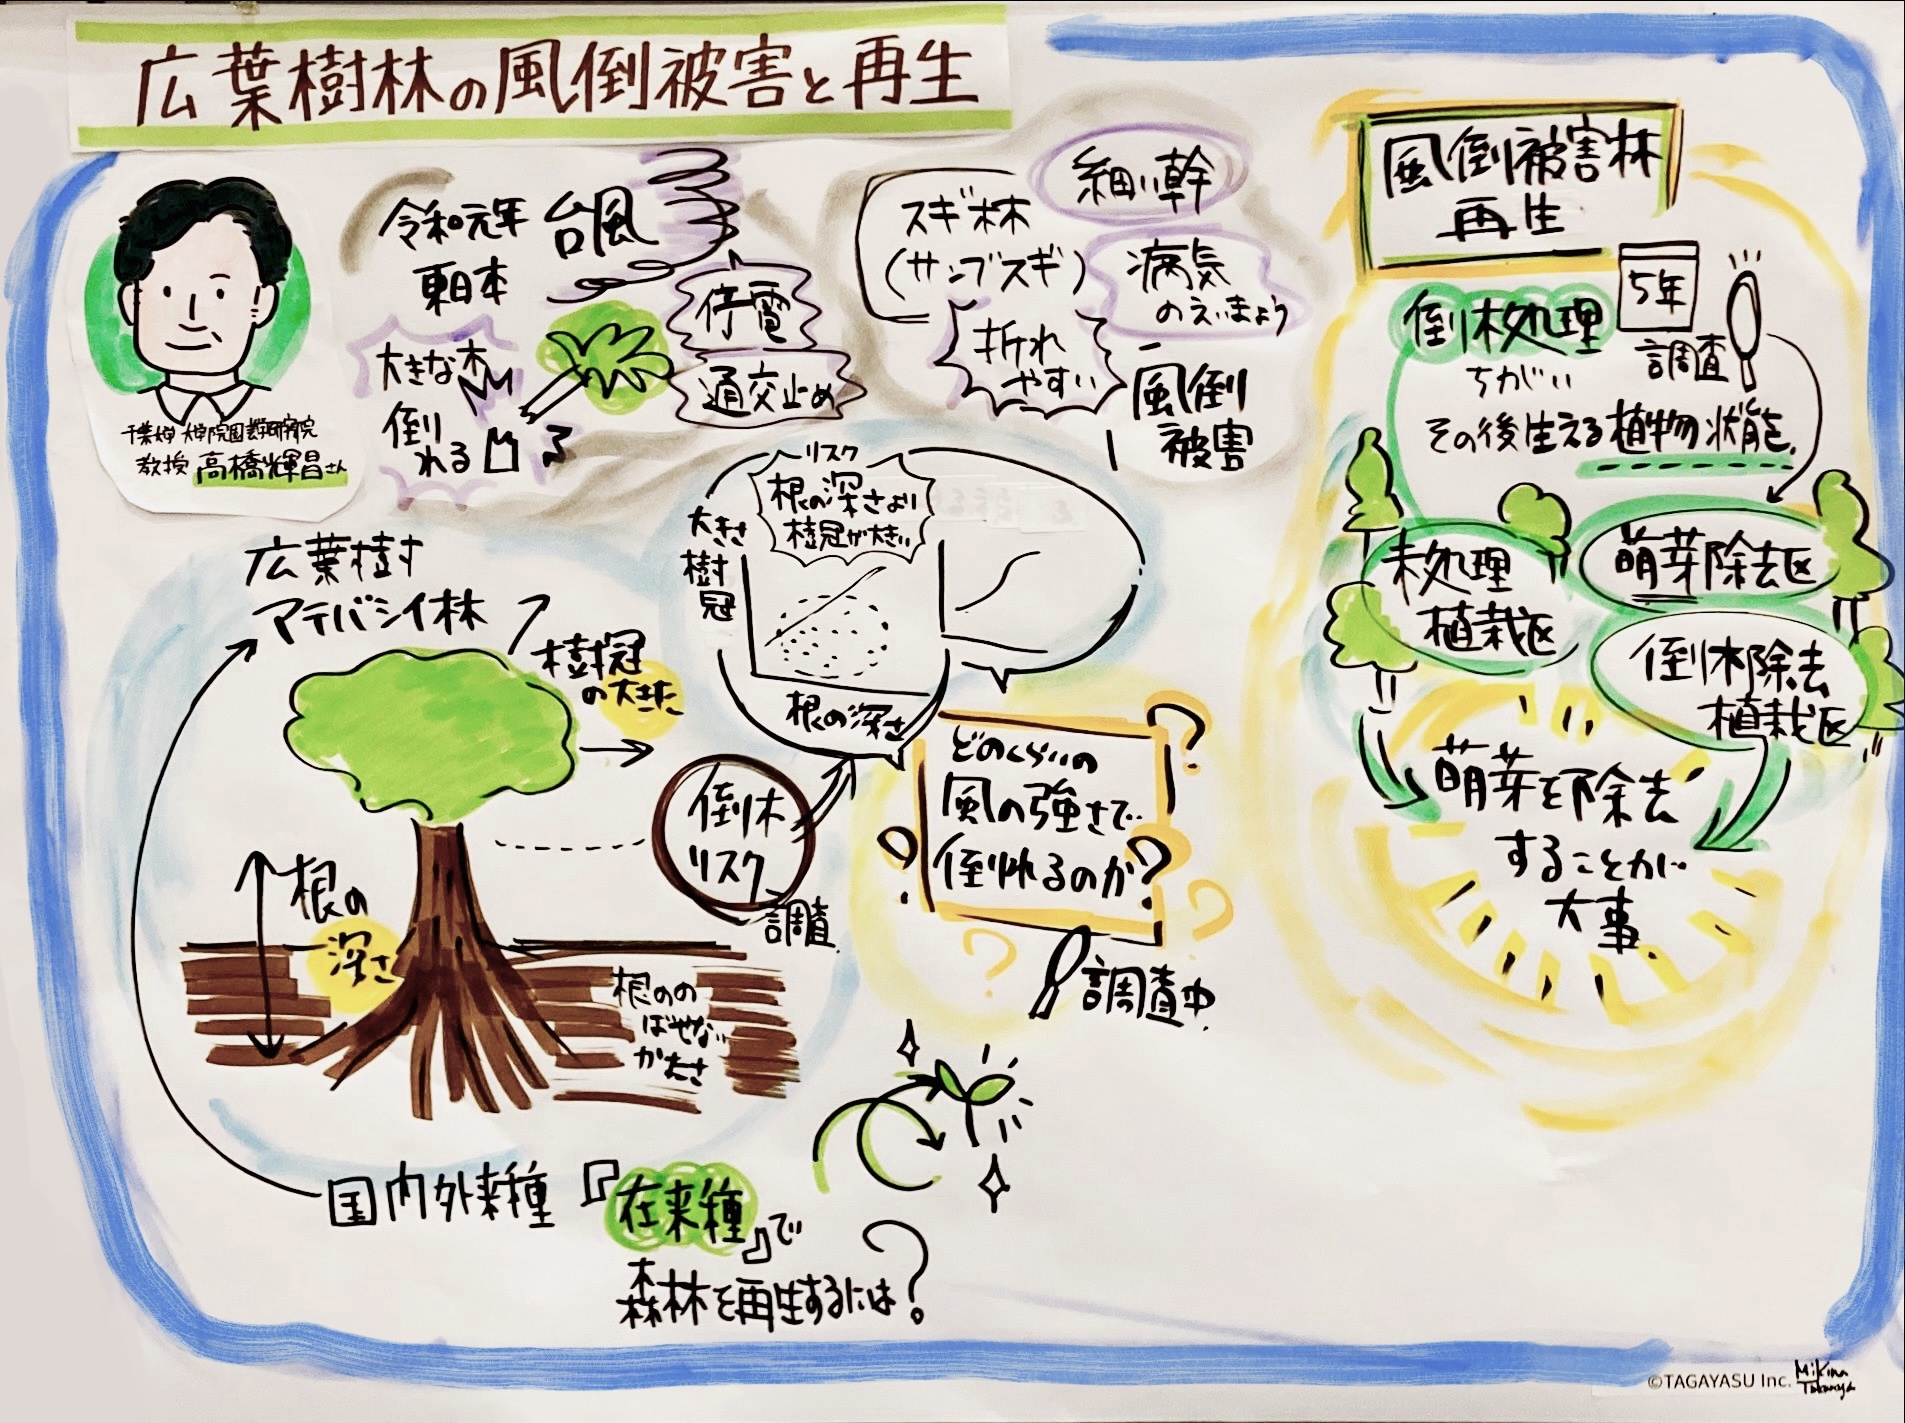 広葉樹林の風倒被害と再生
教授 高橋輝昌さん
令和元年 台風
東日本
大きな木
倒
れる
停電
通交止め
スギ林
(サンブスギ)
細い幹
病気
のえいきょう
折れ
やすい
風倒
被害
広葉樹
マテバシイ林
樹冠
の大きさ
根の
深さ
根のの
ばせない
かたさ
倒木
リスク
調査
リスク
根の深さより
樹冠が大きい
大きさ
樹
冠
根の深さ
どのくらいの
風の強さで
倒れるのか?
調査中
国内外来種
『在来種』で
森林を再生するには?
風倒被害林
再生
倒木処理
ちがい
5年
調査
その後生える植物状態
未処理
植栽区
萌芽除去区
倒木除去
植栽区
萌芽を除去
することが
大事
©TAGAYASU Inc.